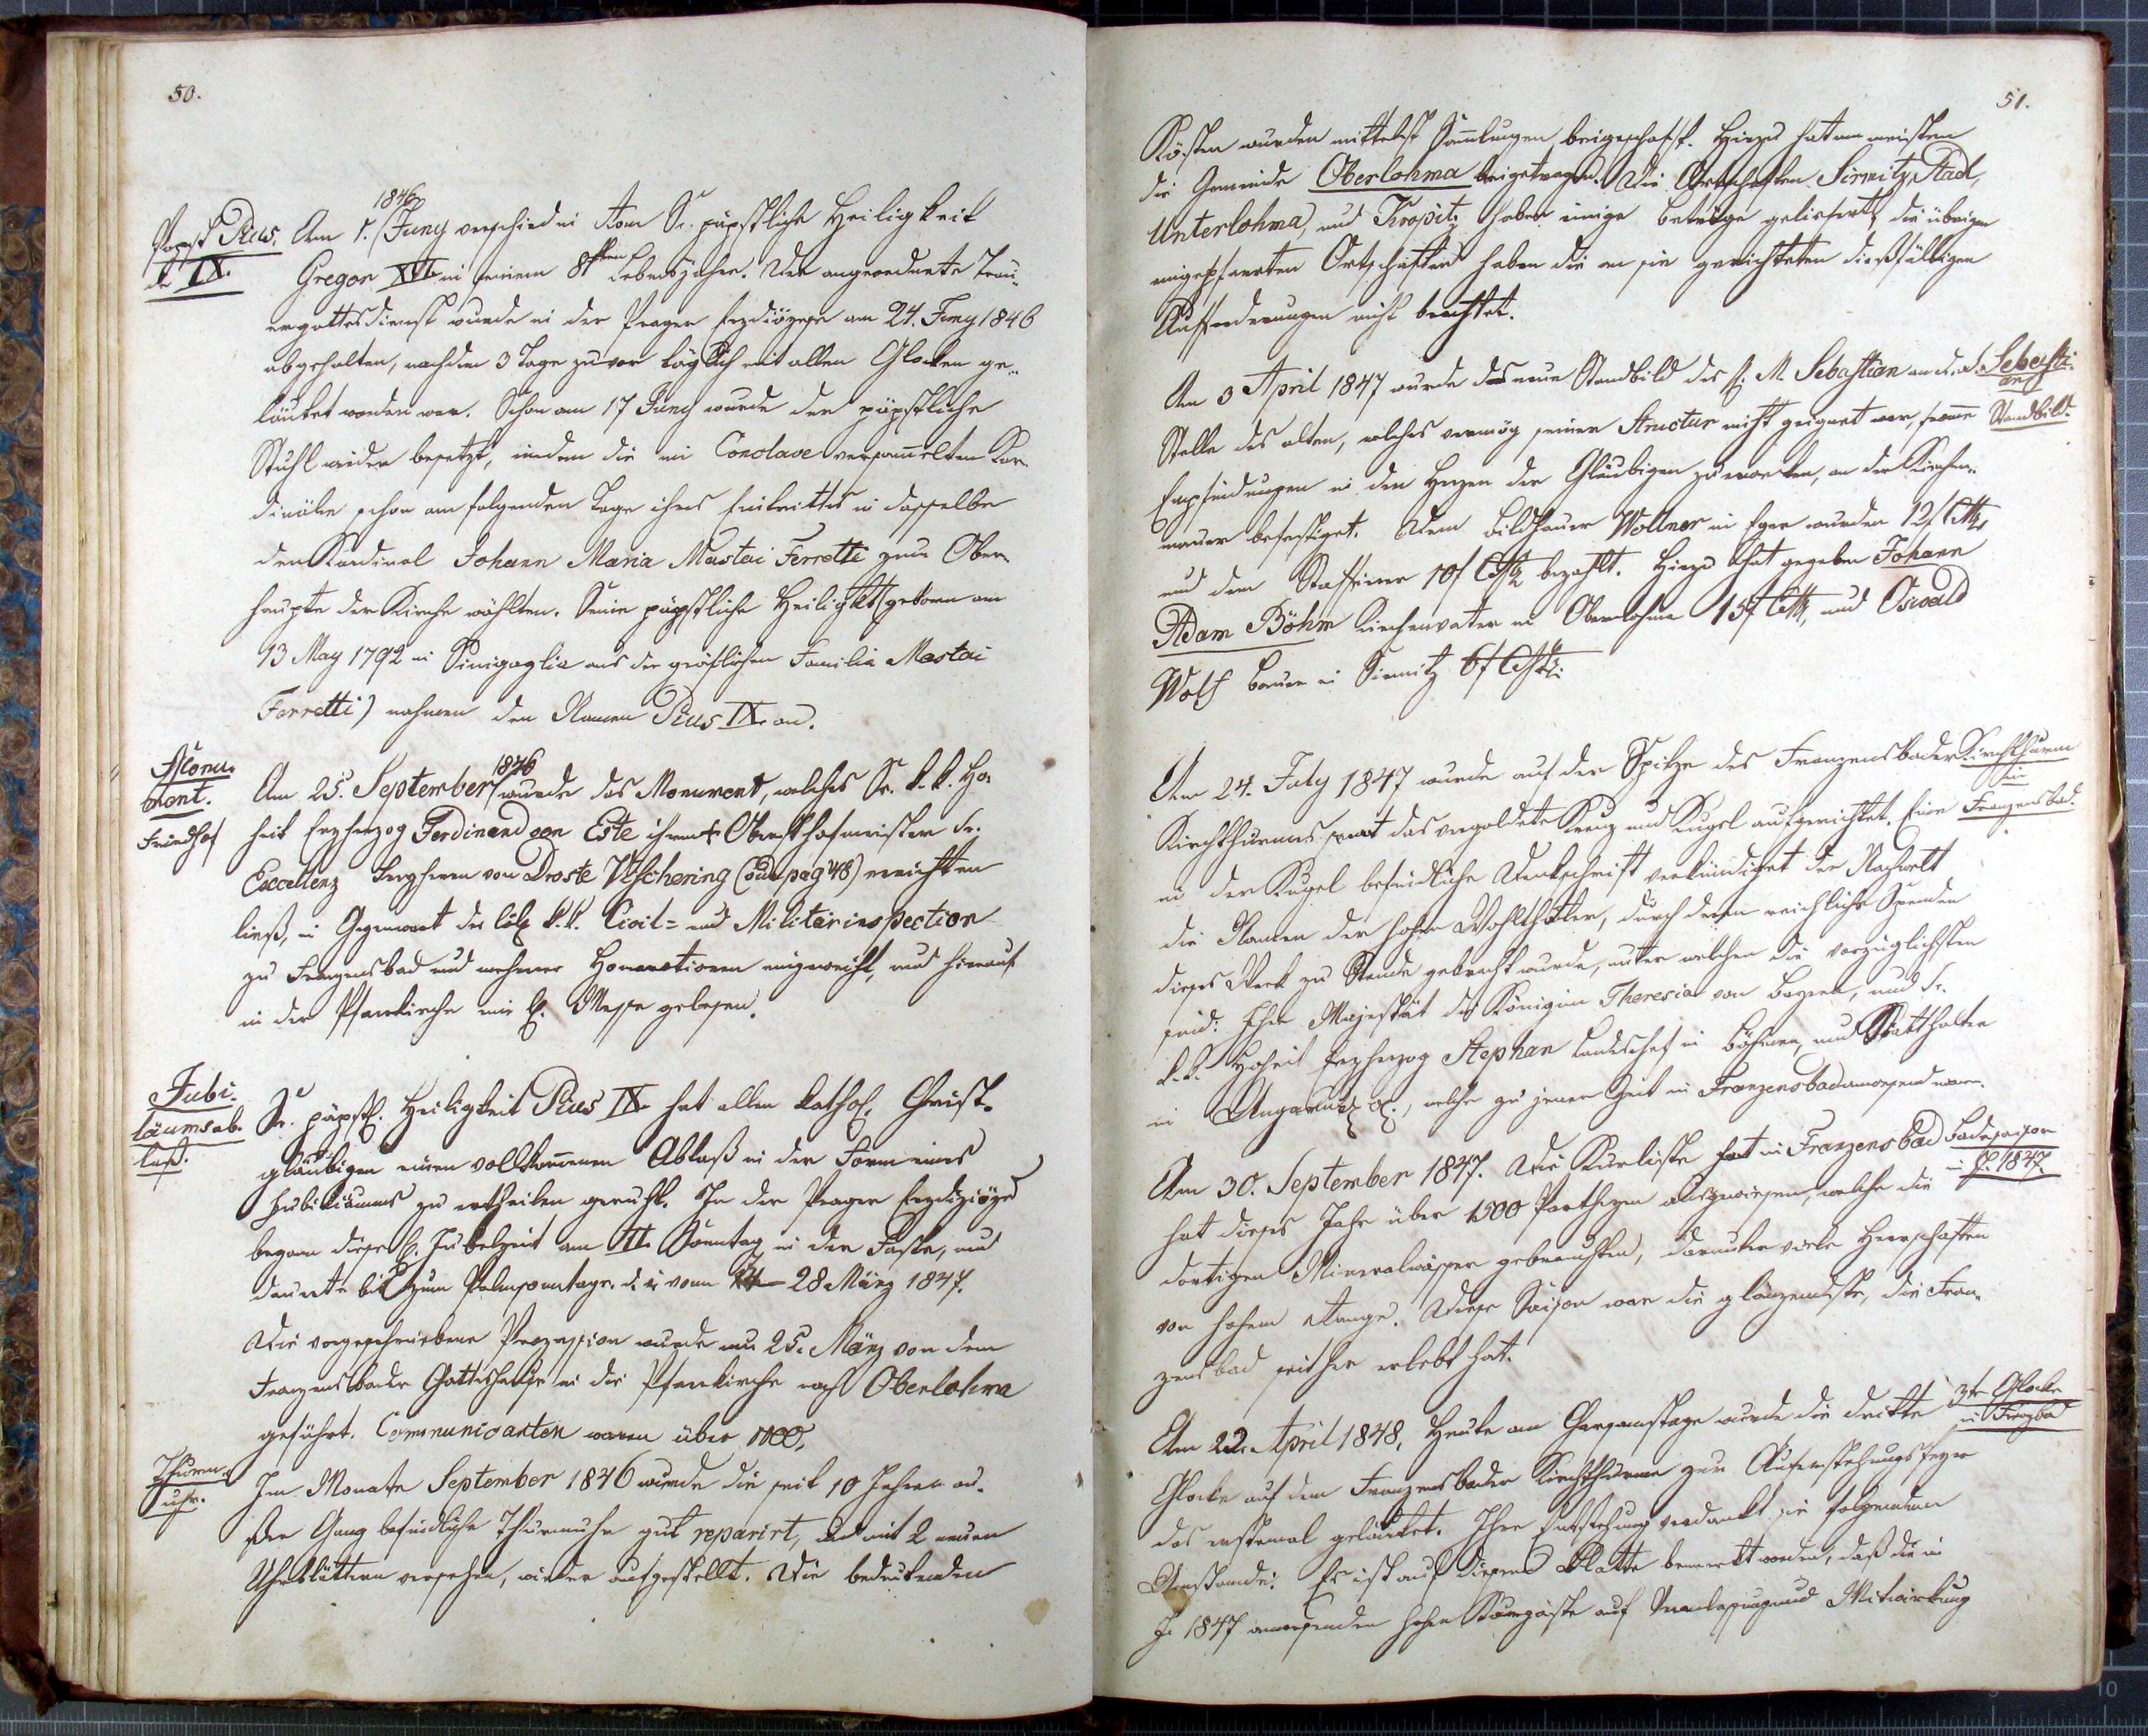 50.
Papst Pius
der IX.
1846
Am 1. Juny verschied in Rom Sr. päpstliche Heiligkeit
Gregor XVI. in seinem 81ten Lebensjahre. Der angeordnete Trau¬
ergottesdienst wurde in der Prager Erzdiözese am 24. Juny 1846
abgehalten, nachdem 3 Tage zuvor täglich mit allen Glocken ge¬
läutet worden war. Schon am 17 Juny wurde der päpstliche
Stuhl wieder besetzt, indem die im Conclave versam̄elten Kar¬
dinäle schon am folgenden Tage ihres Eintrittes in dasselbe
den Kardinal Johann Maria Mastai Ferretti zum Ober¬
haupte der Kirche wählten. Seine päpstliche Heiligkt (geboren am
13 May 1792 in Sinigaglia aus der gräflichen Familie Mastai
Ferretti) nahmen den Namen Pius IX. an.
Monu¬
ment.
Friedhof
1846
Am 25. September wurde das Monument, welches Sr. k. k. Ho¬
heit Erzherzog Ferdinand von Este ihrem † Obersthofmeister Sr.
Excellenz Freyherrn von Droste Vischering (vide pag 48) errichten
ließ, in Gegenwart der löbl. k. k. Civil- und Militärinspection
zu Franzensbad und mehrerer Honoratioren eingeweiht, und hierauf
in der Pfarrkirche eine hl. Messe gelesen.
Jubi¬
läumsab¬
laß.
Sr. päpstl. Heiligkeit Pius IX. hat allen kathol. Christ¬
gläubigen einen vollkom̄enen Ablaß in der Form eines
Jubiläums zu ertheilen geruht. In der Prager Erzdiözes
begann diese hl. Jubelzeit am II. Sonntag in der Faste, und
dauerte bis zum Palmsonntage. d. i. vom 28 März 1847.
Die vorgeschriebene Prozession wurde am 25. März von dem
Franzensbader Gotteshause in die Pfarrkirche nach Oberlohma
geführt. Communicanten waren über 1000.
Thurm¬
uhr.
Im Monate September 1846 wurde die seit 10 Jahren au¬
ßer Gang befindliche Thurmuhr gut reparirt, und mit 2 neuen
Uhrblättern versehen, wieder aufgestellt. Die bedeutenden
51.
Kösten wurden mittelst Sam̄lungen beigeschafft. Hiezu hat am meisten
die Gemeinde Oberlohma beigetragen. Die Ortschaften Sirmitz, Stadl,
Unterlohma, und Tropitz haben einige Beträge geliefert, die übrigen
eingepfarrten Ortschaften haben die an sie gerichteten dießfälligen
Aufforderungen nicht beachtet.
Sebasti¬
an
Standbild.
Am 3 April 1847 wurde das neue Standbild des h. M. Sebastian an d.
Stelle des alten, welches vermög seiner Structur nicht geeignet war, from̄e
Empfindungen in den Herzen der Gläubigen zu wecken, an der Kirchen¬
mauer befestiget. Dem Bildhauer Wollner in Eger wurden 12f CMz
und dem Staffirer 10f CMz bezahlt. Hiezu hat gegeben Johann
Adam Böhm Kirchenvater in Oberlohma 15f CMz, und Oswald
Wolf Bauer in Sirmitz 6f CMz.
Kirchthurm
in
Franzensbad.
Am 24. July 1847 wurde auf der Spitze des Franzensbader
Kirchthurmes das vergoldete Kreuz und Kugel aufgerichtet. Eine
in der Kugel befindliche Denkschrift verkündiget der Nachwelt
die Namen der hohen Wohlthäter, durch deren reichliche Spenden
dieses Werk zu Stande gebracht wurde, unter welchen die vorzüglichsten
sind: Ihre Majestät die Königin Theresia von Bayern, und Sr.
k. k. Hoheit Erzherzog Stephan Landeschef in Böhmen, und Statthalter
in Ungarn, welche zu jener Zeit in Franzensbad anwesend waren.
Badesaison
in J. 1847.
Am 30. September 1847. Die Kurliste hat in Franzensbad
hat dieses Jahr über 1900 Partheyen ausgewiesen, welche die
dortigen Mineralwässer gebrauchten, darunter viele Herrschaften
von hohem Range. Diese Saison war die glänzendste, die Fran¬
zensbad seither erlebt hat.
3te Glocke
in Franzbd
Am 22. April 1848, Heute am Charsamstage wurde die dritte
Glocke auf dem Franzensbader Kirchthurme zur Auferstehungsfeyer
das erstemal geläutet. Ihre Entstehung verdankt sie folgendem
Umstande: Es ist auf diesem Blatte bemerkt worden, daß die im
J. 1847 anwesenden hohen Kurgäste auf Veranlassung und Mitwirkung